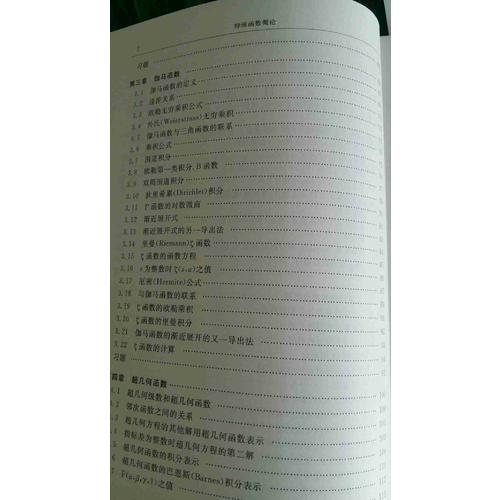 2
特殊函数概论
习题
第三章 伽马函数
3.1 伽马函数的定义
3.2 递推关系
3.3 欧勒无穷乘积公式
3.4 外氏(Weierstrass)无穷乘积
3.5 伽马函数与三角函数的联系
3.6 乘积公式
3.7 围道积分
3.8 欧勒第一类积分,B函数
3.9 双周围道积分
3.10 狄里希累(Dirichlet)积分
3.11 Γ函数的对数微商
3.12 渐近展开式
3.13 渐近展开式的另一导出法
3.14 里曼(Riemann)ζ函数
3.15 ζ函数的函数方程
3.16 s为整数时ζ(s,a)之值
3.17 厄密(Hermite)公式
3.18 与伽马函数的联系
3.19 ζ函数的欧勒乘积
3.20 ζ函数的里曼积分
3.21 伽马函数的渐近展开的又一导出法
3.22 ζ函数的计算
习题
四章 超几何函数
4.1 超几何级数和超几何函数
4.2 邻次函数之间的关系
超几何方程的其他解用超几何函数表示
指标差为整数时超几何方程的第二解
超几何函数的积分表示
超几何函数的巴恩斯(Barnes)积分表示
F(α,β,γ,1)之值